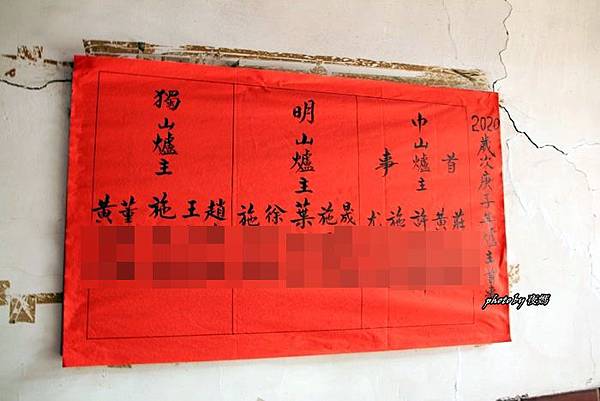 2020歲次庚子年爐主首事
中山爐主
首事
莊
黃
許
施
尤
明山爐主
晟
施
葉
徐
施
獨山爐主
趙
王
施
董
黃
photo by 夜媽